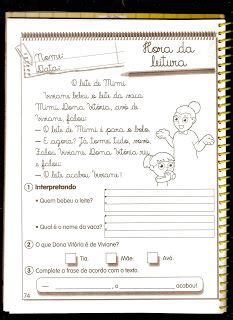 Nome:
Data:
Hora da
leitura
O leite de Mimi
Viviane bebeu o leite da vaca
Mimi. Dona Vitória, avó de
Viviane, falou:
— O leite de Mimi é para o bolo.
— E agora? Já tomei tudo, vovó.
Falou Viviane. Dona Vitória riu
e falou:
— O leite acabou Viviane!
1 Interpretando
• Quem bebeu o leite?
• Qual é o nome da vaca?
2 O que Dona Vitória é de Viviane?
Tia Mãe Avó
3 Complete a frase de acordo com o texto.
— , a acabou!
74